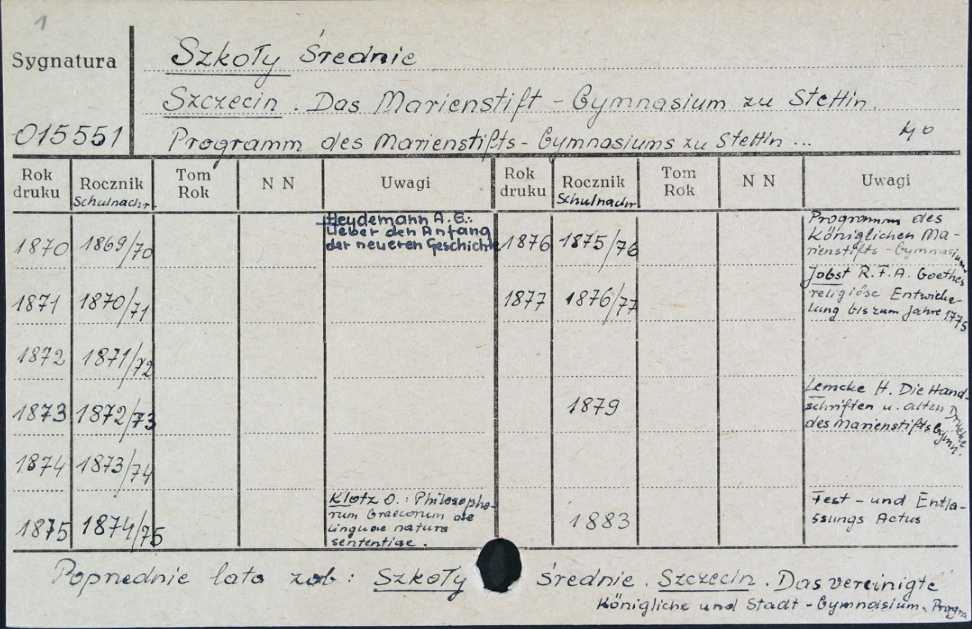 1
Sygnatura
Szkoły Średnie
Szczecin. Das Marienstift-Gymnasium zu Stettin.
015551
Programm des Marienstifts-Gymnasiums zu Stettin...
40
Rok druku Rocznik Schulnachr. Tom Rok N N Uwagi Rok druku Rocznik Schulnachr Tom Rok N N Uwagi
1870 1869/70
Heydemann A. G.:
Ueber den Anfang
der neueren Geschichte
1876 1875/76
Programm des
Königlichen Ma-
rienstifts-Gymnasiums
1871 1870/71
1877 1876/77
Jobst R.F.A. Goethes
religiöse Entwicke-
lung bis zum Jahre 1775
1872 1871/72
1873 1872/73
1879
Lemcke H. Die Hand-
schriften u. alten Drucke
des Marienstifts Gymn.
1874 1873/74
1875 1874/75
Klotz O.: Philosopho-
rum Graecorum de
linguae natura
sententiae.
1883
Fest- und Entla-
ssungs Actus
Poprzednie lata zob: Szkoły Średnie. Szczecin. Das vereinigte
Königliche und Stadt-Gymnasium. Progra